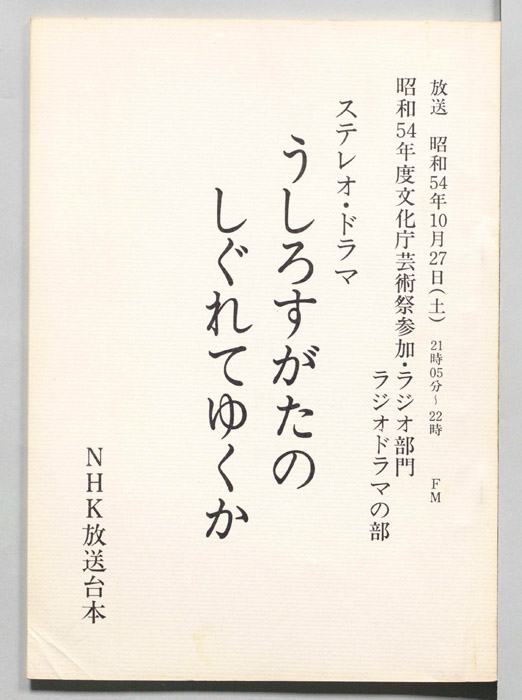 放送 昭和54年10月27日(土) 21時05分~22時 FM
昭和54年度文化庁芸術祭参加・ラジオ部門
ラジオドラマの部
ステレオ・ドラマ
うしろすがたの
しぐれてゆくか
NHK放送台本